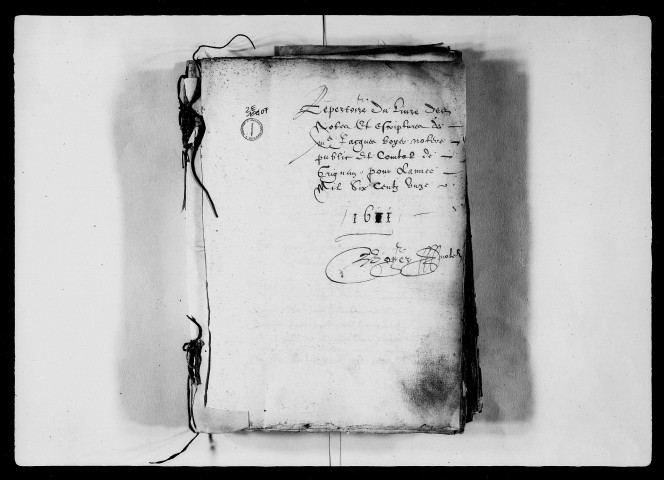 2E
Repertoire du Livre des
Notes Et Escriptures de
Me Jacques boyer notere
public et Comtal de
Grignan pour Lannee
Mil Six Centz Unze
1611
Boyer